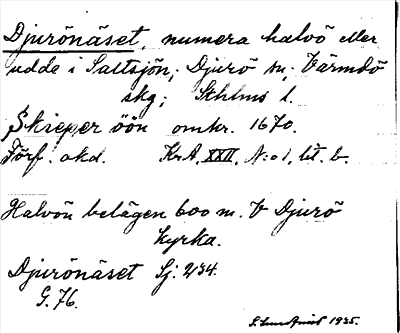 Djurönäset, numera halvö eller
udde i Saltsjön; Djurö sn; Värmdö
skg; Sthlms l.
Skieper öön omkr. 1670.
Förf: okd. KrA, XXII, N:o 1, lit. b.
Halvön belägen 600 m. V Djurö
kyrka.
Djurönäset Sj: 234.
G. 76.
S. Lundqvist 1935.